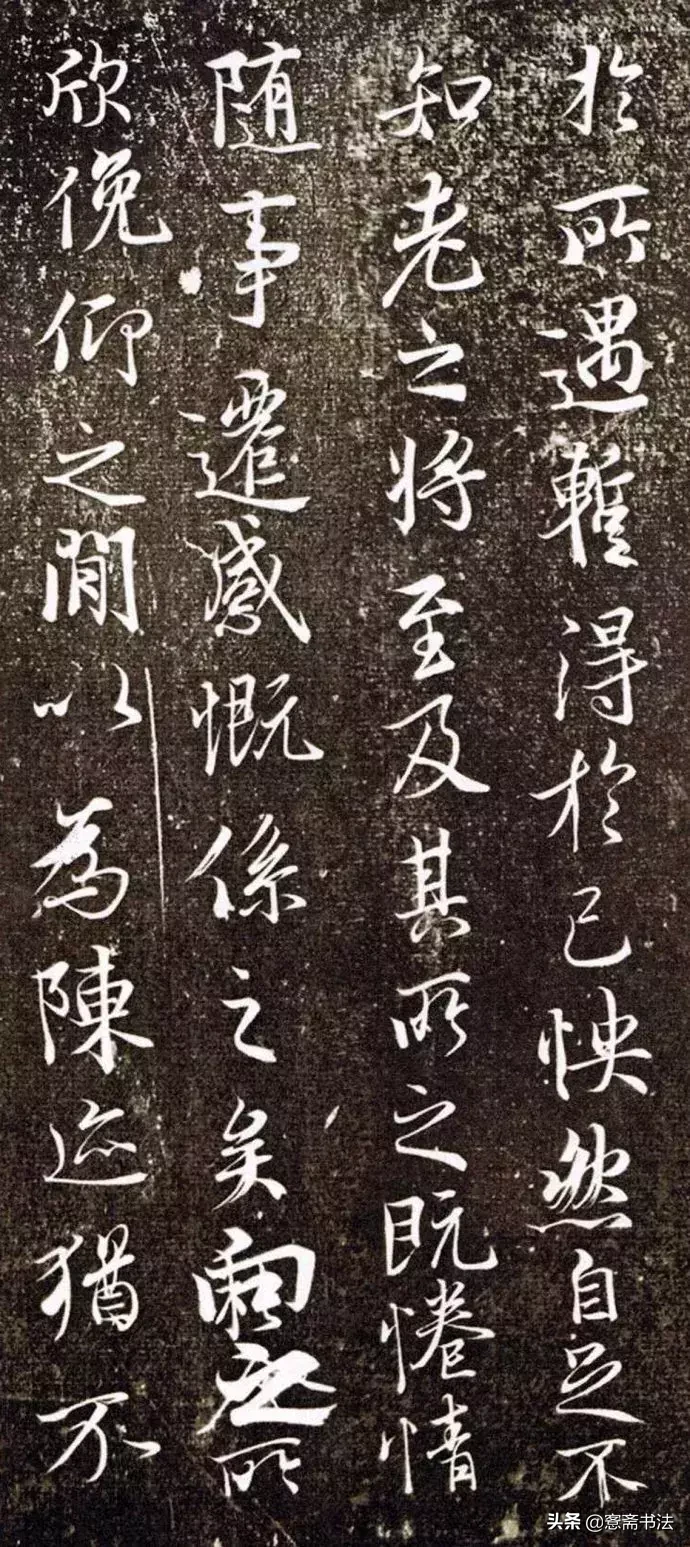 於所遇暫得於己怏然自足不
知老之将至及其所之既惓情
随事遷感慨係之矣向之所
欣俛仰之閒以為陳迹猶不
头条@窓斋书法